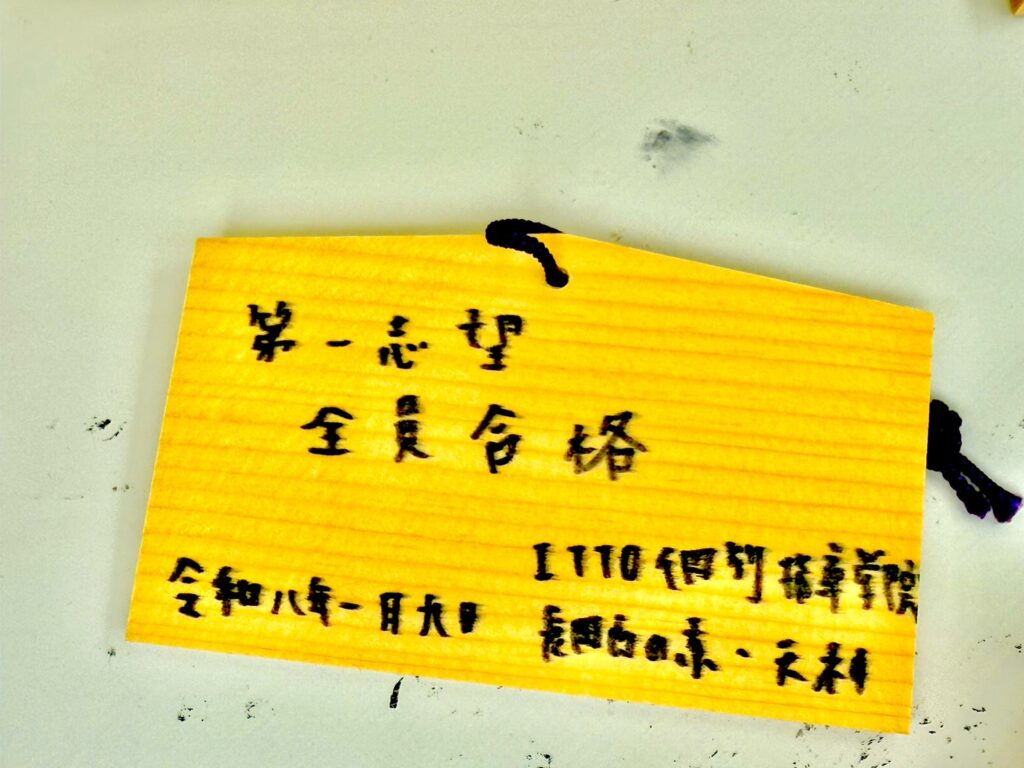 第一志望
全員合格
令和八年一月九日
ITTO個別指導学院
長岡